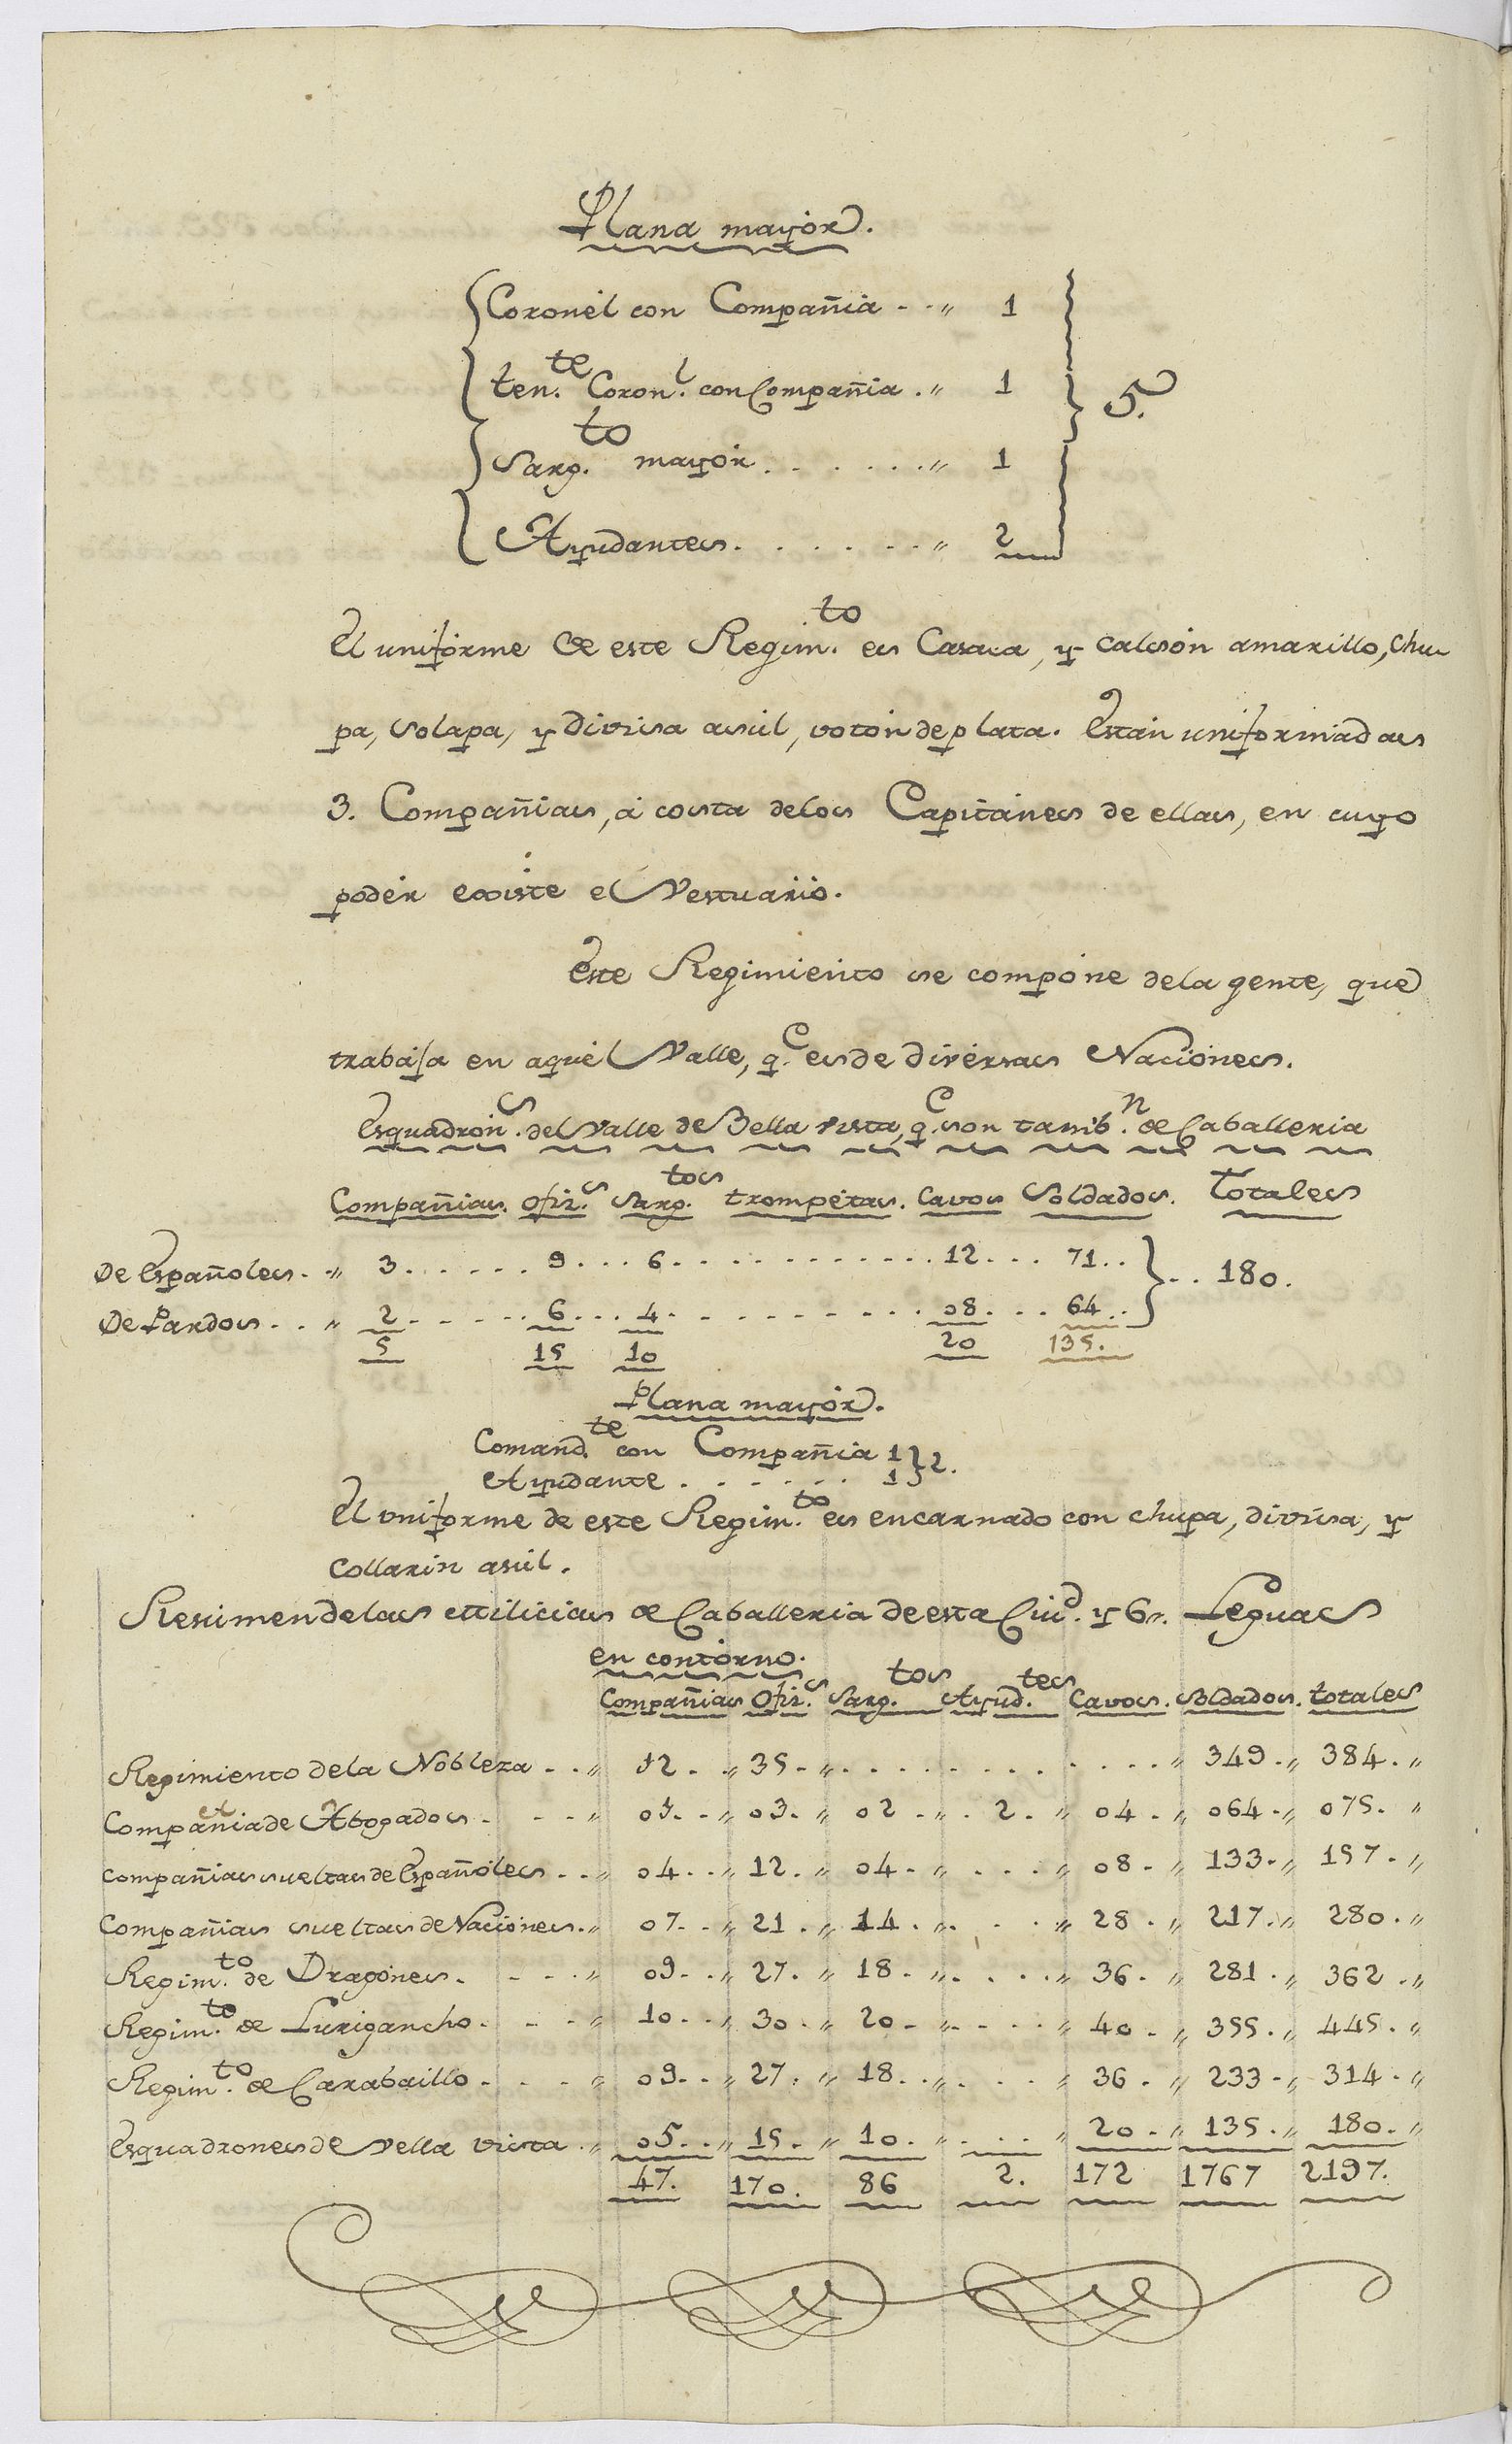 Plana mayor.
Coronel con Compañia - - " 1
ten.te Coron.l con Compañia . " 1
5.
Sarg.to mayor. . . . . . . " 1
Ayudantes. . . . . . . " 2
El uniforme de este Regim.to es Casaca, y calsòn amarillo, Chu-
pa, solapa, y divisa asul, votòn de plata. Estàn uniformadas
3. Compañias, à costa de los Capitànes de ellas, en cuyo
podèr existe el Vestuario.
Este Regimiento se compòne dela gente, que
trabaja en aquèl Valle, q.e es de divèrsas Naciònes.
Esquadron.s del Valle de Bella vista, q.e son tamb.n de Caballeria
Compañias. Ofiz.s Sarg.tos trompètas. Cavos Soldados. Totales
De Españoles. . " 3. . . . . . 9. . . 6. . . . . . . . . . . . 12. . . 71. .
. . 180.
De Pardos. . . " 2. . . . . . 6. . . 4. . . . . . . . . . . 08. . . 64. .
5 15 10 20 135.
Plana mayòr.
Comand.te con Compañia 1
2.
Ayudante. . . . . . . 1
El vniforme de este Regim.to es encarnado con chupa, divisa, y
Collarin asul.
Resùmen delas Milicias de Caballeria de esta Ciud. y 6". Leguas
en contòrno.
Compañias Ofiz.s Sarg.tos Ayud.tes Cavos. Soldados. totales
Regimiento dela Nobleza - . " 12. . " 35. " . . . . . . . . . . . . " 349. " 384. "
Compañia de Abogados. - . . " 01. . " 03. " 02. " . 2. " 04. " 064. " 075. "
Compañias sueltas de Españòles . . " 04. . " 12. " 04. " . . . " 08. " 133. " 157. "
Compañias sueltas de Naciònes. " 07. . " 21. " 14. " . . . " 28. " 217. " 280. "
Regim.to de Dragònes. - . . " 09. . " 27. " 18. " . . . . " 36. " 281. " 362. "
Regim.to de Lurigancho. - . " 10. . " 30. " 20. " . . . . " 40. " 355. " 445. "
Regim.to de Carabaillo. - . . " 09. . " 27. " 18. " . . . " 36. " 233. " 314. "
Esquadrones de Vella vista. " 05. . " 15. " 10. " . . . " 20. " 135. " 180. "
47. 170. 86 2. 172 1767 2197.